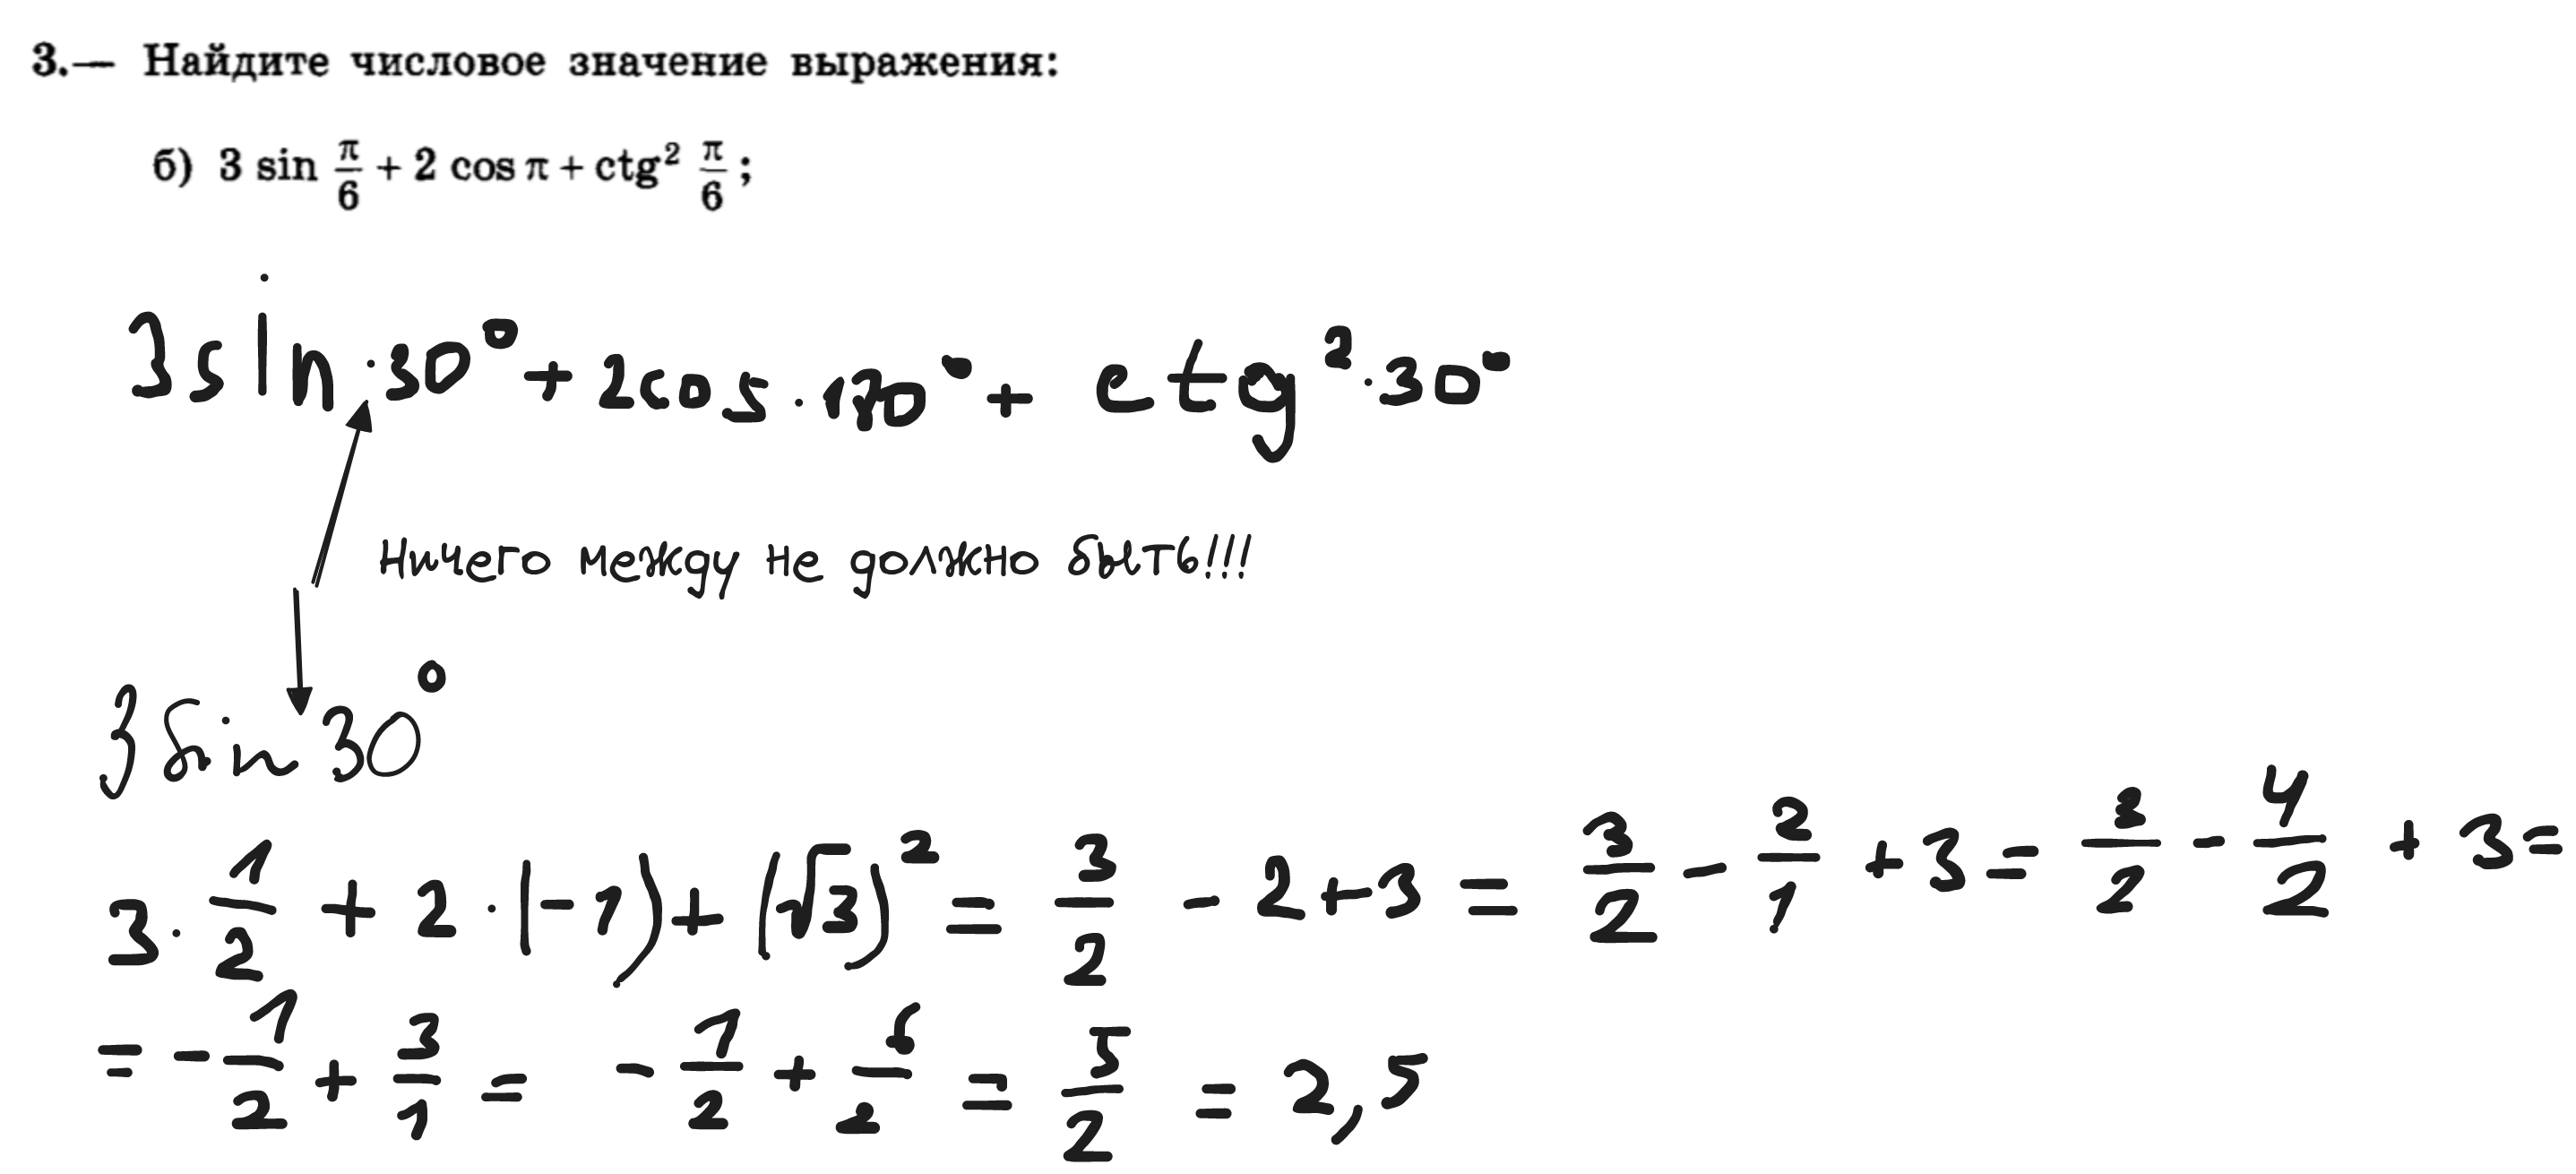 3.— Найдите числовое значение выражения:
б) 3 sin π/6 + 2 cos π + ctg² π/6 ;
3sin·30° + 2cos·180° + ctg²·30°
Ничего между не должно быть!!!
3 sin 30°
3·1/2 + 2·(-1) + (√3)² = 3/2 - 2+3 = 3/2 - 2/1 + 3 = 3/2 - 4/2 + 3 =
= - 1/2 + 3/1 = - 1/2 + 6/2 = 5/2 = 2,5